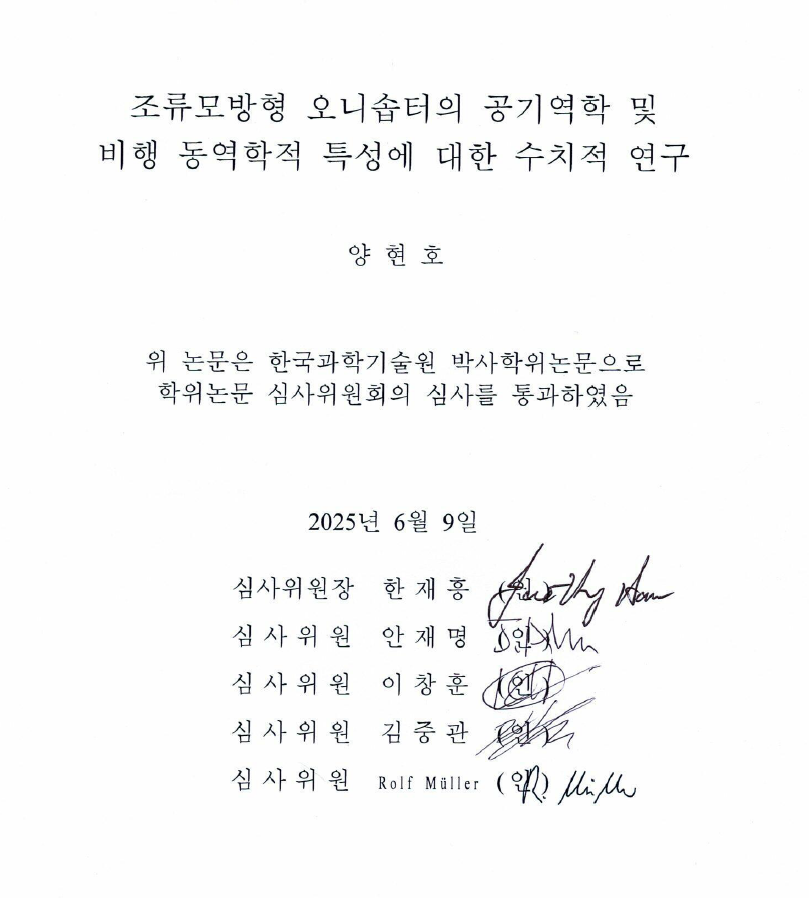 조류모방형 오니솝터의 공기역학 및
비행 동역학적 특성에 대한 수치적 연구
양 현 호
위 논문은 한국과학기술원 박사학위논문으로
학위논문 심사위원회의 심사를 통과하였음
2025년 6월 9일
심사위원장 한 재 흥 (인)
심 사 위 원 안 재 명 (인)
심 사 위 원 이 창 훈 (인)
심 사 위 원 김 중 관 (인)
심 사 위 원 Rolf Müller (인)